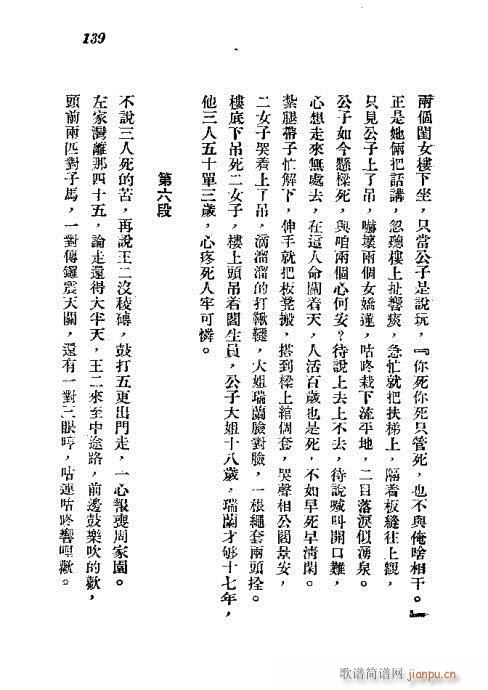 139
兩個閨女樓下坐，只當公子是說玩，『你死你死只管死，也不與俺啥相干。』
正是她倆把話講，忽聽樓上扯響痰，急忙就把扶梯上，隔着板縫往上觀，
只見公子上了吊，嚇壞兩個女嬌蓮，咕咚栽下流平地，二目落淚似湧泉。
公子如今懸樑死，與咱兩個心何安？待說上去上不去，待說喊叫開口難，
心想走來無處去，在這人命關着天，人活百歲也是死，不如早死早清閑。
紮腿帶子忙解下，伸手就把板凳搬，搭到樑上綰個套，哭聲相公閻景安，
二女子哭着上了吊，滴溜溜的打鞦韆，大姐瑞蘭臉對臉，一根繩套兩頭拴。
樓底下吊死二女子，樓上頭吊着閻生員，公子大姐十八歲，瑞蘭才够十七年，
他三人五十單三歲，心疼死人牢可憐。
第六段
不說三人死的苦，再說王二沒稜磚，鼓打五更出門走，一心報喪周家園。
左家灣離那四十五，論走還得大半天，王二來至中途路，前邊鼓樂吹的歡，
頭前兩匹對子馬，一對傳鑼震天關，還有一對三眼哼，咕連咕咚響哩歡。
歌谱简谱网
www.jianpu.cn